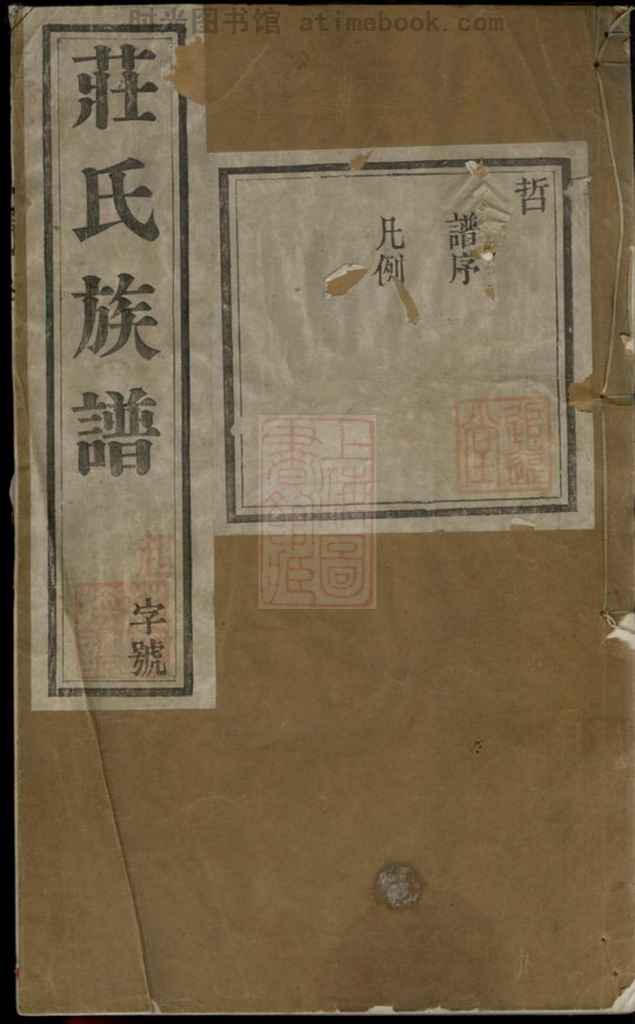 时光图书馆 atimebook.com
莊氏族譜
字號
哲
譜序
凡例
上海圖
書館藏